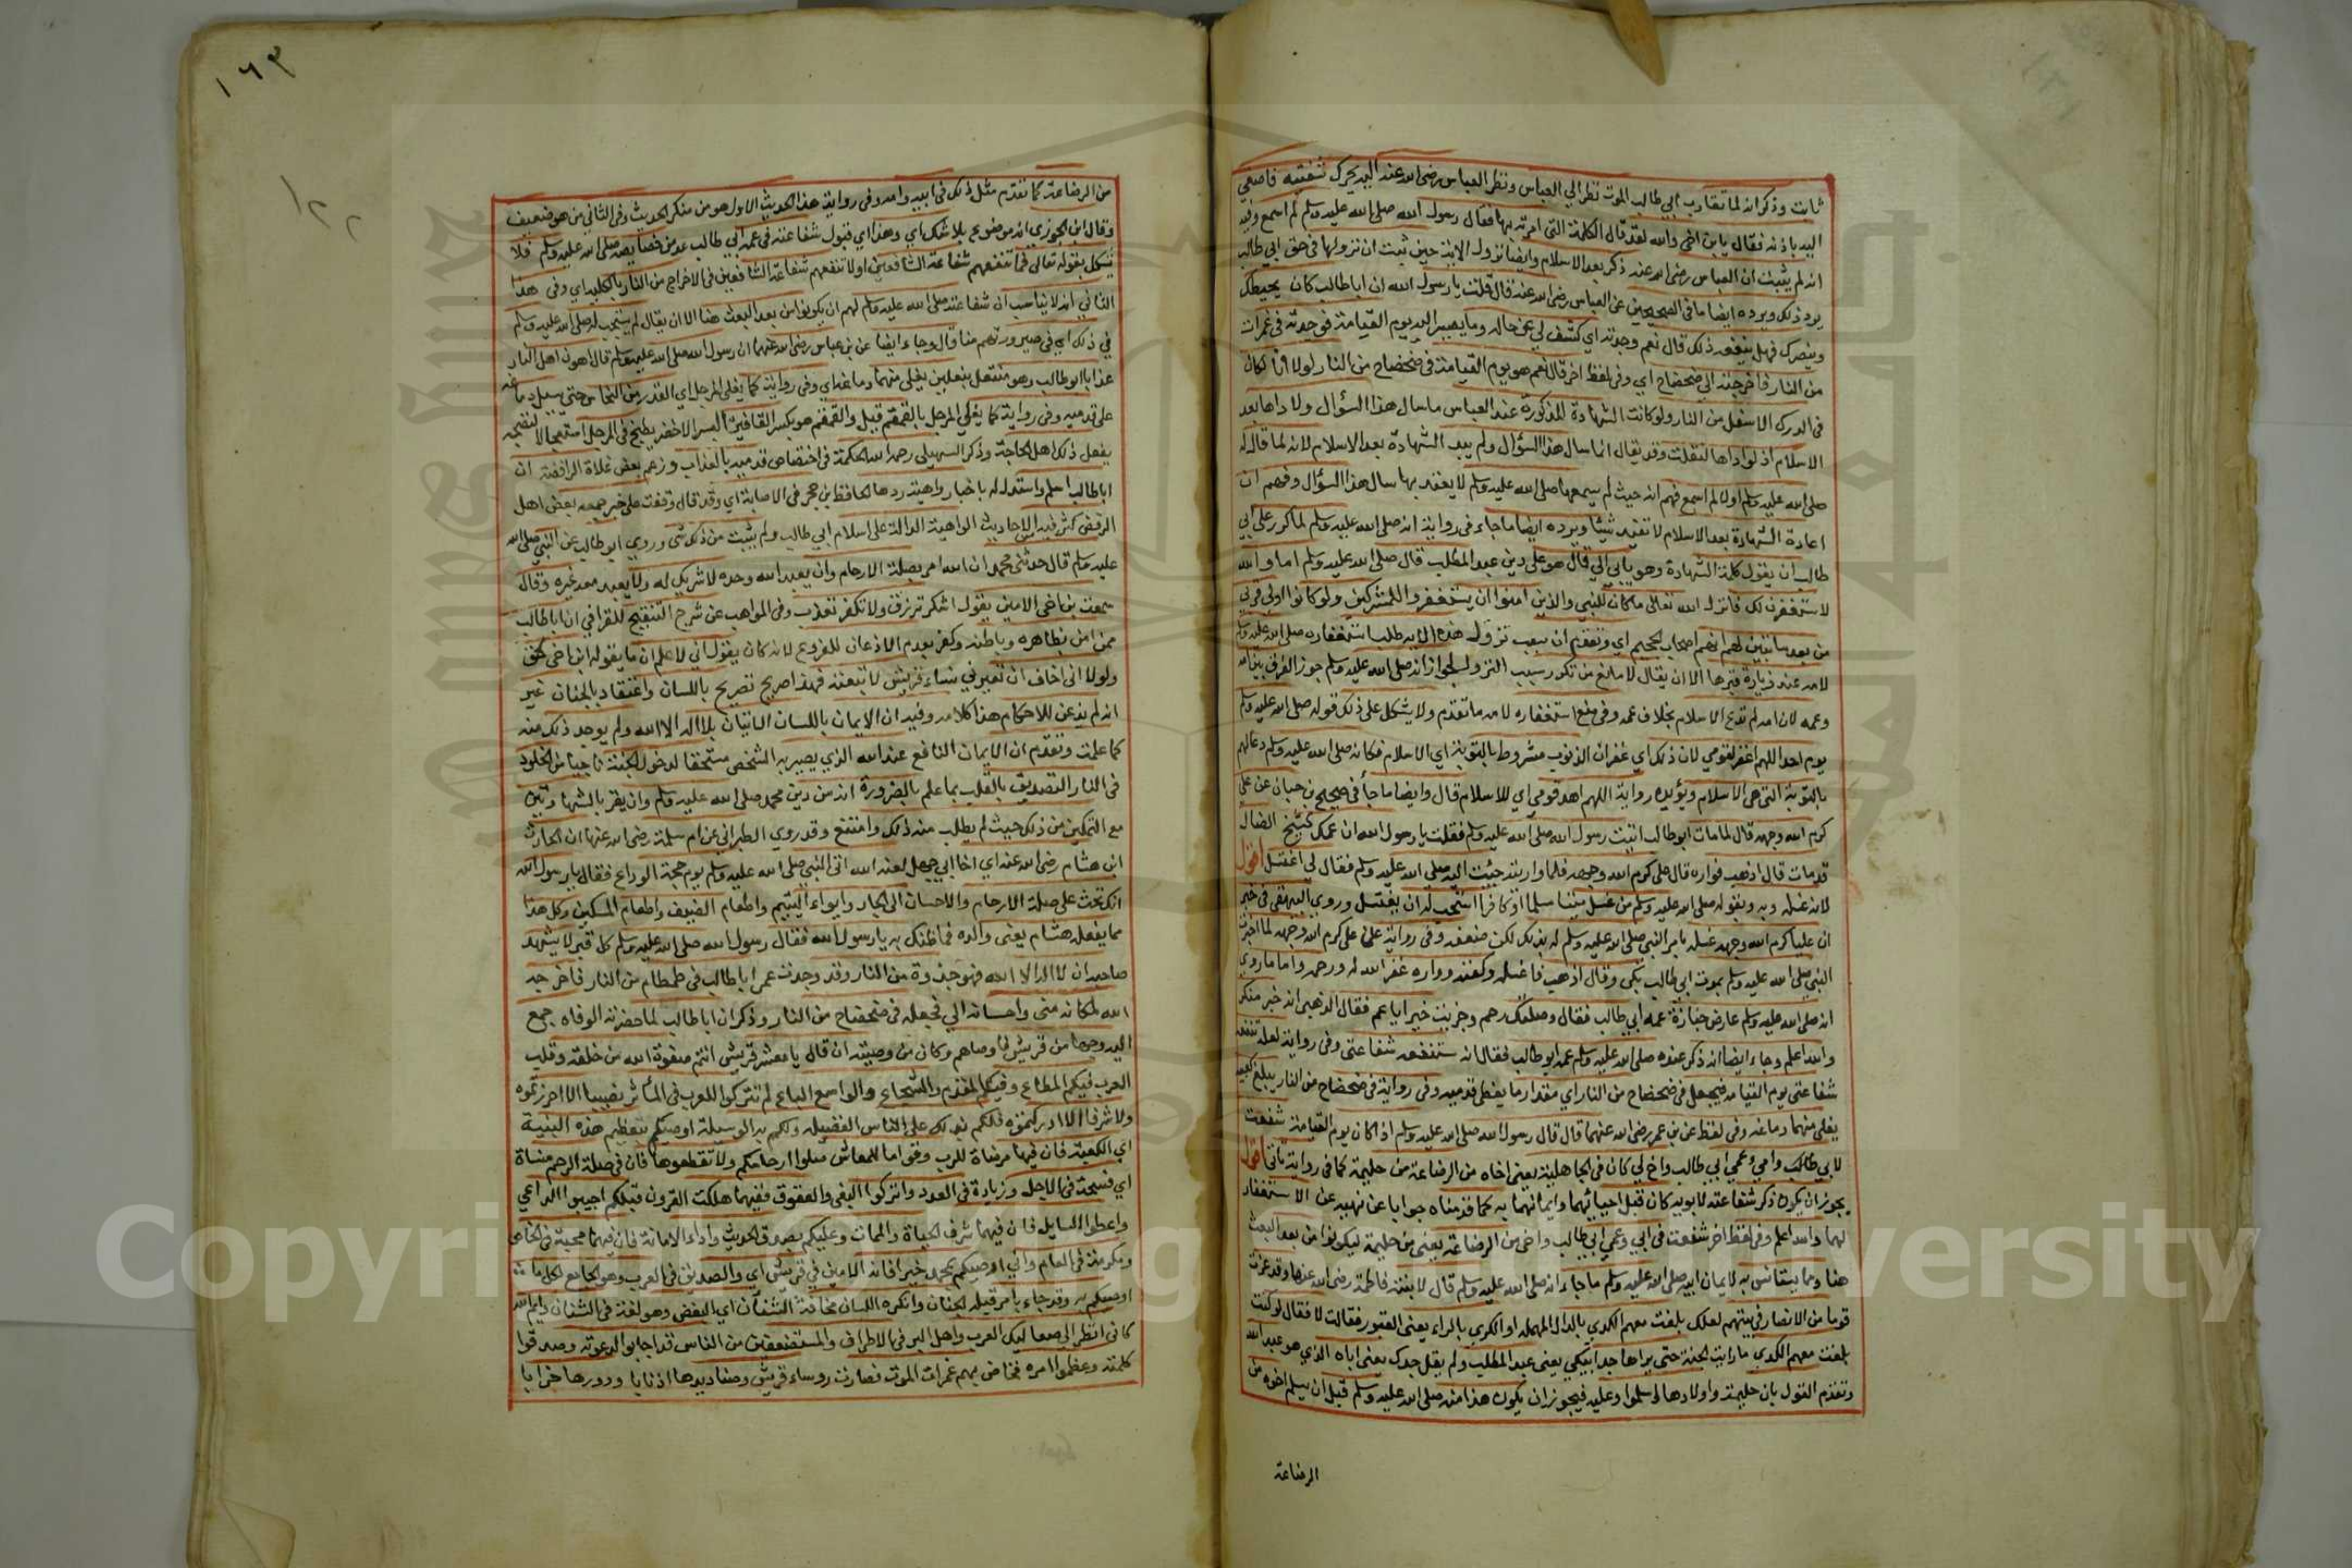 ثابت وذكر انه لما تقارب ابي طالب الموت نظر الي العباس ونظر العباس رضي الله عنه اليه يحرك شفتيه فاصغي
اليه باذنه فقال يابن اخي والله لقد قال الكلمة التي امرته بها فقال رسول الله صلى الله عليه وسلم لم اسمع وفيه
انه لم يثبت ان العباس رضي الله عنه ذكر بعد الاسلام وايضا نزول الاية حين ثبت ان نزولها في حق ابي طالب
يرد ذلك ويرده ايضا ما في الصحيحين عن العباس رضي الله عنه قال قلت يا رسول الله ان ابا طالب كان يحيطك
وينصرك فهل ينفعه ذلك قال نعم وجدته اي كشف لي عن حاله وما يصير اليه يوم القيامة فوجدته في غمرات
من النار فاخرجته الي ضحضاح اي وفي لفظ اخر قال نعم هو يوم القيامة في ضحضاح من النار لولا انا لكان
في الدرك الاسفل من النار ولو كانت الشهادة المذكورة عند العباس ما سال هذا السؤال ولا داها بعد
الاسلام اذ لو اداها لنقلت وقد يقال انما سال هذا السؤال ولم يعد الشهادة بعد الاسلام لانه لما قال له
صلى الله عليه وسلم اولا لم اسمع فهم انه حيث لم يسمعها صلى الله عليه وسلم لا يعتد بها سال هذا السؤال وفهم ان
اعادة الشهادة بعد الاسلام لا تفيد شيئا ويرده ايضا ما جاء في رواية انه صلى الله عليه وسلم لما كرر على ابي
طالب ان يقول كلمة الشهادة وهو يابي الي قال هو على دين عبد المطلب قال صلى الله عليه وسلم اما والله
لاستغفرن لك فانزل الله تعالى ما كان للنبي والذين امنوا ان يستغفروا للمشركين ولو كانوا اولي قربي
من بعد ما تبين لهم انهم اصحاب الجحيم اي وتقدم ان سبب نزول هذه الاية طلب استغفاره صلى الله عليه وسلم
لامه عند زيارة قبرها الا ان يقال لا مانع من تكرر سبب النزول لجواز انه صلى الله عليه وسلم جوز الفرق بين امه
وعمه لان امه لم تدع الاسلام بخلاف عمه وفي منع استغفاره لامه ما تقدم ولا يشكل على ذلك قوله صلى الله عليه وسلم
يوم احد اللهم اغفر لقومي لان ذلك اي غفران الذنوب مشروط بالتوبة اي الاسلام فكانه صلى الله عليه وسلم دعا لهم
بالتوبة التي هي الاسلام ويؤيده رواية اللهم اهد قومي اي للاسلام قال وايضا ما جاء في صحيح بن حبان عن علي
كرم الله وجهه قال لما مات ابو طالب اتيت رسول الله صلى الله عليه وسلم فقلت يا رسول الله ان عمك الشيخ الضال
قد مات قال اذهب فواره قال علي كرم الله وجهه فلما واريته جئت اليه صلى الله عليه وسلم فقال لي اغتسل اقول
لانه غسله وبه وبقوله صلى الله عليه وسلم من غسل ميتا مسلما او كافرا استحب له ان يغتسل وروي البيهقي في خبر
ان عليا كرم الله وجهه غسله بامر النبي صلى الله عليه وسلم له بذلك لكن ضعفه وفي رواية عن علي كرم الله وجهه لما اخبرت
النبي صلى الله عليه وسلم بموت ابي طالب بكي وقال اذهب فاغسله وكفنه وواره غفر الله له ورحمه واما ما روي
انه صلى الله عليه وسلم عارض جنازة عمه ابي طالب فقال وصلتك رحم وجزيت خيرا يا عم فقال الذهبي انه خبر منكر
والله اعلم وجاء ايضا انه ذكر عنده صلى الله عليه وسلم عمه ابو طالب فقال انه ستنفعه شفاعتي وفي رواية لعله تنفعه
شفاعتي يوم القيامه فيجعل في ضحضاح من النار اي مقدار ما يغطي قدميه وفي رواية في ضحضاح من النار يبلغ كعبيه
يغلي منهما دماغه وفي لفظ عن بن عمر رضي الله عنهما قال قال رسول الله صلى الله عليه وسلم اذا كان يوم القيامة شفعت
لابي طالب وامي وعمي ابي طالب واخ لي كان في الجاهلية يعني اخاه من الرضاعة من حليمة كما في رواية ياتي اقول
يجوز ان يكون ذكر شفاعته لابويه كان قبل احيائهما وايمانهما به كما قدمناه جوابا عن نهيه عن الاستغفار
لهما والله اعلم وفي لفظ اخر شفعت في ابي وعمي ابي طالب واخي من الرضاعة يعني من حليمة ليكونوا من بعد البعث
هنا ومما يستانس به لايمان ابيه صلى الله عليه وسلم ما جاء انه صلى الله عليه وسلم قال لابنته فاطمة رضي الله عنها وقد عزت
قوما من الانصار في ميتهم لعلك بلغت معهم الكدي بالدال المهملة او الكري بالراء يعني القبور فقالت لا فقال لو كنت
بلغت معهم الكدي ما رايت الجنة حتى يراها جد ابيكي يعني عبد المطلب ولم يقل جدك يعني اباه الذي هو عبد الله
وتقدم القول بان حليمة واولادها اسلموا وعليه فيجوز ان يكون هذا منه صلى الله عليه وسلم قبل ان يسلم اخوه من
الرضاعة
١٦٣
١٢٢
من الرضاعة كما تقدم مثل ذلك في ابيه وامه وفي رواية هذا الحديث الاول هو من منكر الحديث وفي الثاني من هو ضعيف
وقال ابن الجوزي انه موضوع بلا شك اي وهذا اي قبول شفاعته في عمه ابي طالب عد من خصايصه صلى الله عليه وسلم فلا
يشكل بقوله تعالى فما تنفعهم شفاعة الشافعين او لا تنفعهم شفاعة الشافعين في الاخراج من النار بالكلية اي وفي هذا
الثاني انه لا يناسب ان شفاعته صلى الله عليه وسلم لهم ان يكونوا من بعد البعث هنا الا ان يقال لم يستجب له صلى الله عليه وسلم
في ذلك اي في صيرورتهم هنا قال وجاء ايضا عن بن عباس رضي الله عنهما ان رسول الله صلى الله عليه وسلم قال اهون اهل النار
عذابا ابو طالب وهو منتعل بنعلين يغلي منهما دماغه اي وفي رواية كما يغلي المرجل اي القدر من النحاس حتي يسيل دماغه
على قدميه وفي رواية كما يغلي المرجل بالقمقم قيل والقمقم هو بكسر القافين البسر الاخضر يطبخ في المرجل استعجالا لنضجه
يفعل ذلك اهل الحاجة وذكر السهيلي رحمه الله الحكمة في اختصاص قدميه بالعذاب وزعم بعض غلاة الرافضة ان
ابا طالب اسلم واستدل له باخبار واهية ردها الحافظ بن حجر في الاصابة اي وقد قال وقفت على خبر جمعه بعض اهل
الرفض كثر فيه من الاحاديث الواهية الدالة على اسلام ابي طالب ولم يثبت من ذلك شى وروي ابو طالب عن النبي صلى الله
عليه وسلم قال حدثني محمد ان الله امر بصلة الارحام وان يعبد الله وحده لا شريك له ولا يعبد معه غيره وقال
سمعت بن اخي الامين يقول اشكر ترزق ولا تكفر تعذب وفي المواهب عن شرح التنقيح للقرافي ان ابا طالب
ممن امن بظاهره وباطنه وكفر بعدم الاذعان للفروع لانه كان يقول اني لاعلم ان ما يقوله ابن اخي لحق
ولولا اني اخاف ان تعيرني نساء قريش لاتبعته فهذا صريح تصريح باللسان واعتقاد بالجنان غير
انه لم يذعن للاحكام هذا كلامه وفيه ان الايمان باللسان الاتيان بلا اله الا الله ولم يوجد ذلك منه
كما علمت وتقدم ان الايمان النافع عند الله الذي يصير به الشخص مستحقا لدخول الجنة ناجيا من الخلود
في النار التصديق بالقلب بما علم بالضرورة انه من دين محمد صلى الله عليه وسلم وان يقر بالشهادتين
مع التمكين من ذلك حيث لم يطلب منه ذلك وامتنع وقد روي الطبراني عن ام سلمة رضي الله عنها ان الحارث
ابن هشام رضي الله عنه اي اخا ابي جهل لعنه الله اتى النبي صلى الله عليه وسلم يوم حجة الوداع فقال يا رسول الله
انك تحث على صلة الارحام والاحسان الى الجار وايواء اليتيم واطعام الضيف واطعام المسكين وكل هذا
مما يفعله هشام يعني والده فما ظنك به يا رسول الله فقال رسول الله صلى الله عليه وسلم كل قبر لا يشهد
صاحبه ان لا اله الا الله فهو جذوة من النار وقد وجدت عمي ابا طالب في طمطام من النار فاخرجه
الله لمكانه مني واحسانه الي فجعله في ضحضاح من النار وذكر ان ابا طالب لما حضرته الوفاه جمع
اليه وجهاء من قريش فاوصاهم وكان من وصيته ان قال يا معشر قريش انتم صفوة الله من خلقه وقلب
العرب فيكم المطاع وفيكم المقدم والشجاع والواسع الباع لم تتركوا للعرب في المآثر نصيبا الا احرزتموه
ولا شرفا الا ادركتموه فلكم بذلك على الناس الفضيلة ولكم به الوسيلة اوصيكم بتعظيم هذه البنية
اي الكعبة فان فيها مرضاة للرب وقواما للمعاش صلوا ارحامكم ولا تقطعوها فان في صلة الرحم منساة
اي فسحة في الاجل وزيادة في العدد واتركوا البغي والعقوق ففيهما هلكت القرون قبلكم اجيبوا الداعي
واعطوا السايل فان فيهما شرف الحياة والممات وعليكم بصدق الحديث واداء الامانة فان فيهما محبة في الخاص
ومكرمة في العام واني اوصيكم بمحمد خيرا فانه الامين في قريش اي والصديق في العرب وهو الجامع لكل ما
اوصيكم به وقد جاء بامر قبله الجنان وانكره اللسان مخافة الشنآن اي البغض وهو لغة في الشنان وايم الله
كاني انظر الي صعاليك العرب واهل البر في الاطراف والمستضعفين من الناس قد اجابوا دعوته وصدقوا
كلمته وعظموا امره فخاض بهم غمرات الموت فصارت روساء قريش وصناديدها اذنابا ودورها خرابا
Copyright © King Saud University